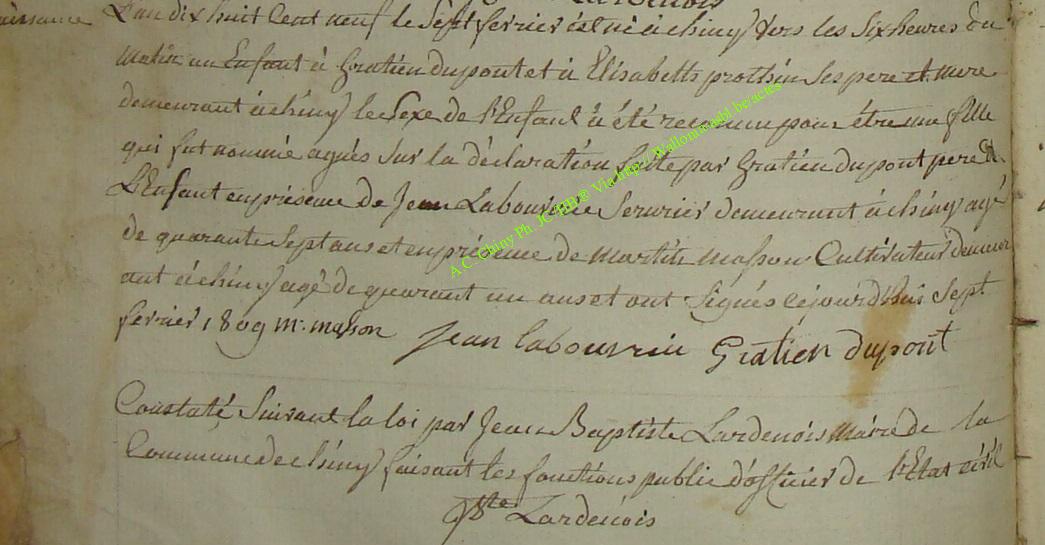 Lardenois
naissance L'an dix huit Cent neuf le Sept fevrier est né à chiny vers les Six heures du
matin un Enfant à Gratien dupont et à Elisabeth prothin Ses pere et mere
demeurant à chiny le Sexe de l'Enfant à été reconnu pour être une fille
qui fut nomée agnès Sur la déclaration faite par Gratien dupont pere de
L'Enfant en présence de Jean Labouverie Serurier demeurant à chiny agé
de quarante Sept ans et en présence de martin masson Cultivateur demeur
ant à chiny agé de quarant un ans et ont Signés cejourdhui Sept
fevrier 1809 m. masson Jean labouvriu Gratien dupont
Constaté Suivant la loi par Jean Baptiste Lardenois Maire de la
Commune de chiny faisant les fonctions public d'officier de l'Etat civil
JBte Lardenois
A.C. Chiny Ph. JC HB © Via http://Wallonia-asbl.be/actes